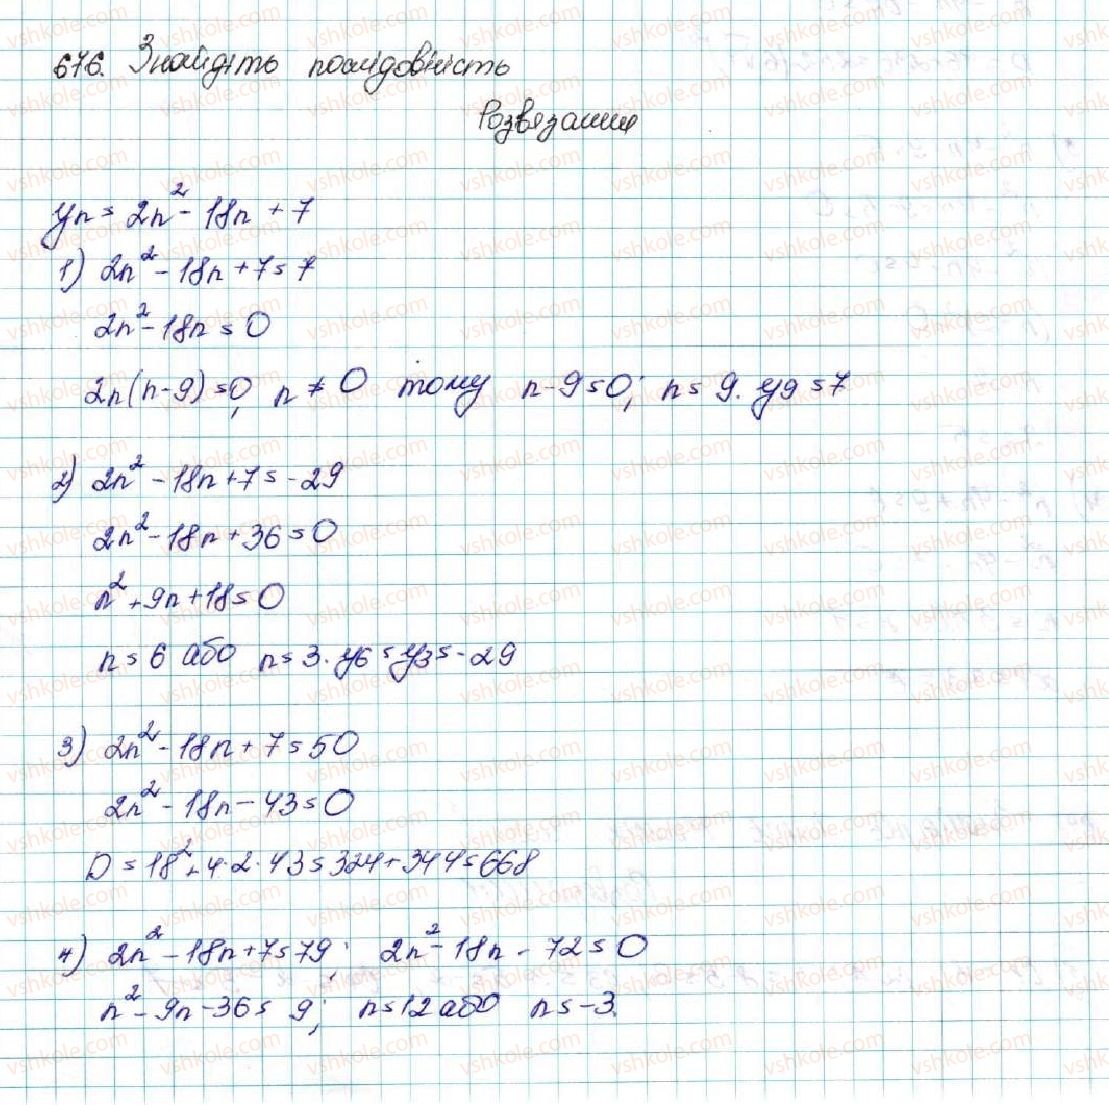 676. Знайдіть послідовність
Розвязання
yn = 2n² - 18n + 7
1) 2n² - 18n + 7 = 7
2n² - 18n = 0
2n(n - 9) = 0, n ≠ 0 тому n - 9 = 0; n = 9. y9 = 7
2) 2n² - 18n + 7 = -29
2n² - 18n + 36 = 0
n² + 9n + 18 = 0
n = 6 або n = 3. y6 = y3 = -29
3) 2n² - 18n + 7 = 50
2n² - 18n - 43 = 0
D = 18² + 4·2·43 = 324 + 344 = 668
4) 2n² - 18n + 7 = 79; 2n² - 18n - 72 = 0
n² - 9n - 36 = 9; n = 12 або n = -3.